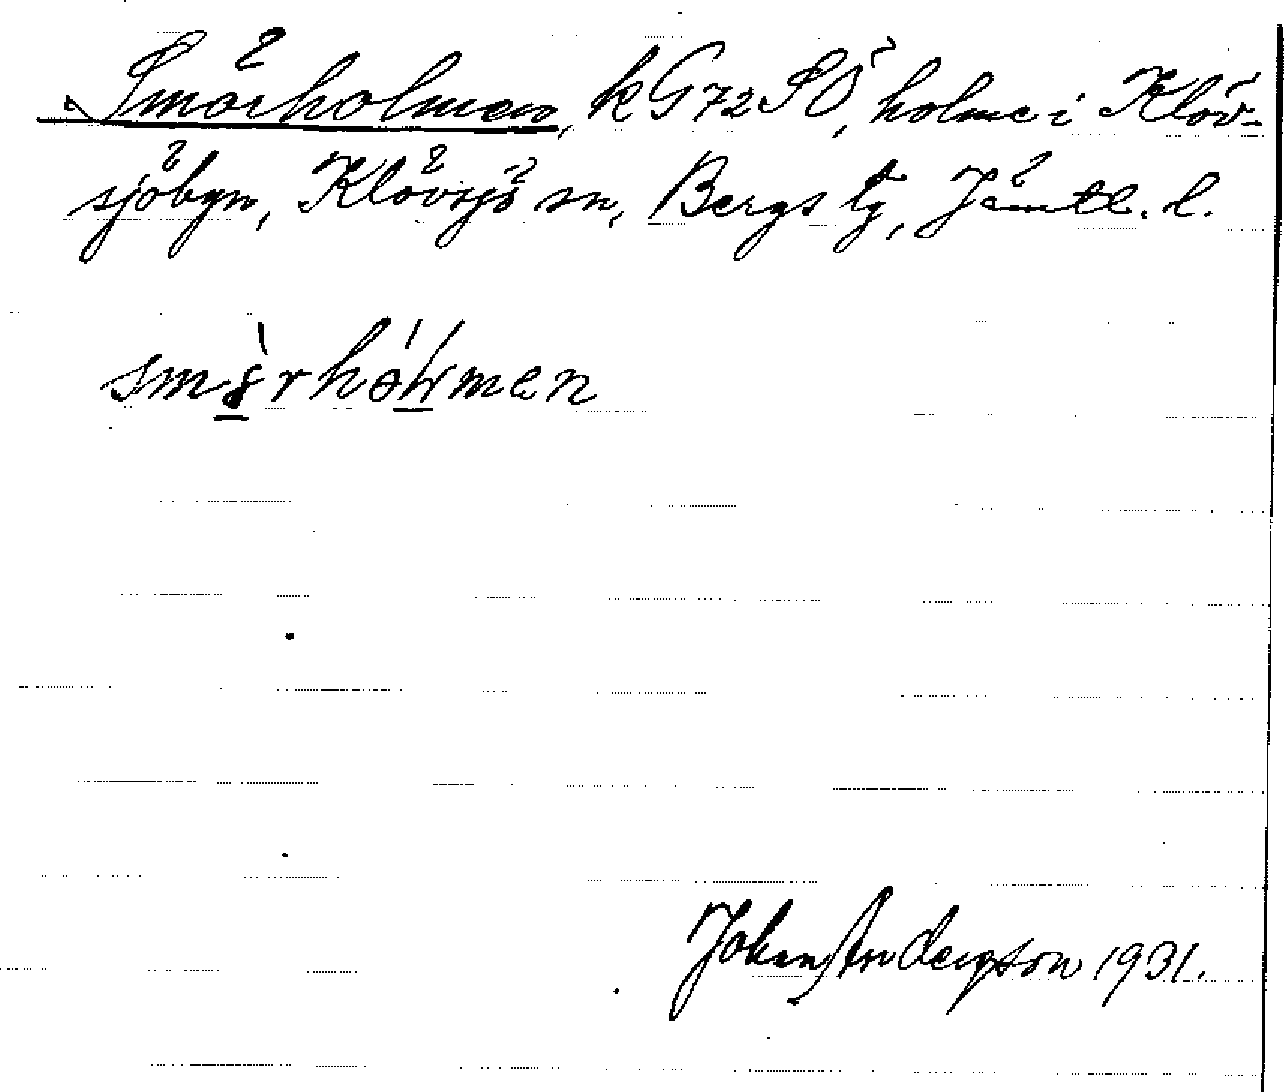 Smörholmen, kG72SÖ, holme i Klöv-
sjöbyn, Klövsjö sn, Bergs tg, Jämtl. l.
Johan Anderzson 1931.